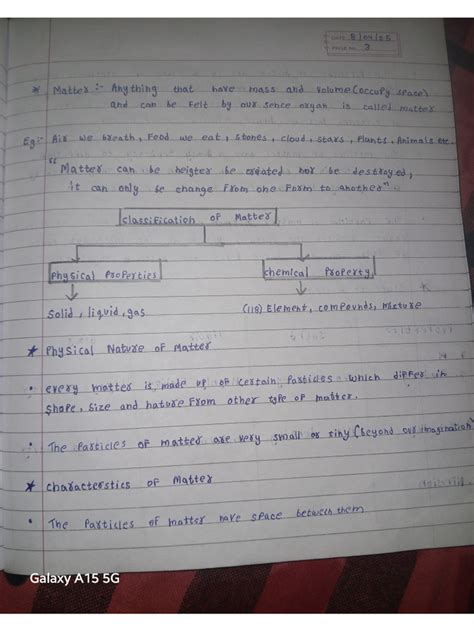 DATE 8/04/25
PAGE NO. 3
* Matter :- Anything that have mass and volume (occupy space)
and can be felt by our sence organ is called matter
Eg:- Air we breath, Food we eat, stones, cloud, stars, Plants, Animals etc.
"Matter can be neigter be created nor be destroyed,
it can only be change from one form to another"
classification of Matter
Physical Properties chemical Property
Solid, liquid, gas (118) Element, compounds, mixture
* Physical Nature of Matter
• every matter is made up of certain Particles which differ in
shape, size and nature from other type of matter.
• The Particles of matter are very small or tiny (beyond our imagination)
* characterstics of Matter
• The Particles of matter have space between them
Galaxy A15 5G